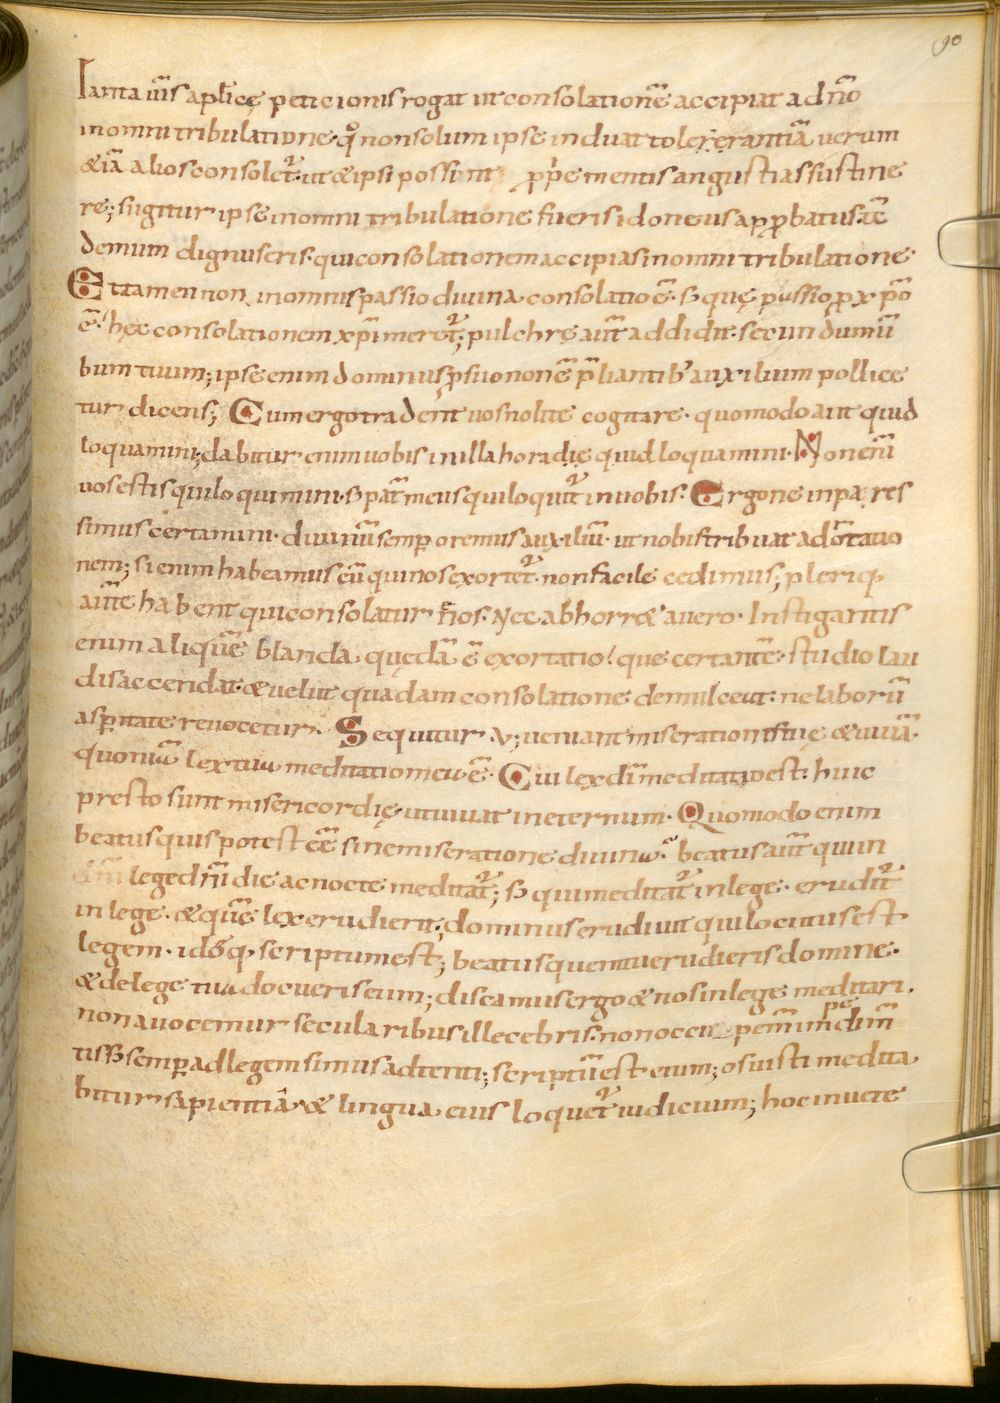 90
Ianta uiris aplice peticionis rogat ut consolationē accipiat a dño
in omni tribulatione. qđ non solum ipse in duat tolererantiā uerum
&iā alios consolet᷑. ut & ipsi possint ppriemen tis angustias sustine
re; sig itur ipse in omni tribulatione fueris idoneus apprbatus. tē
demum dignus eris. qui consolationem accipias in omni tribulatione.
Et tamen non in omnis passio diuina consolatio ē. sʒ quę passio p xpo
ē. hęc consolationem xpi meret᷑; pulchre aut addidit. secundum ũ
bum tuum; ipse enim dominus psuo nonē pliantibʒ auxilium pollice
tur dicens; Cum ergo tradent uos nolite cogitare. quomodo aut quid
loquamini; dabitur enim uobis in illa hora die quid loquamini. Non enī
uos estis qui loquimini. sʒ pat meus qui loquit᷑ in uobis. Ergo ne inpares
simus certamini. diuinū semp oremus auxiliū. ut nobis tribuat adortatio
nem; si enim habeamus eū qui nos exortet᷑. non facile cedimus; pleriq
autē habent qui consolatur hos. Nec abhorr& a uero. Instigantis
enim aliquē blanda quędā ē exortatio! que certantē. studio lau
dis accendat. & uelut quadam consolatione demulceat. ne laborū
aspitate reuocetur. Sequitur .v; ueniant miserationes tuę & uiuā.
quoniā lex tua meditatio mea ē. Cui lex dñi meditatio est. huic
presto sunt misericordię ut uiuat in eternum. Quomodo enim
beatus quis potest eē sine miseratione diuina. beatus aut qui in
lege dñi die ac nocte meditat᷑; sʒ qui meditat᷑ in lege. erudit᷑
in lege. & quē lex erudierit; dominus erudiuit qui locutus est
legem. ideoq. scriptum est; beatus quem tu erudieris domine.
& de lege tua docueris eum; discamus ergo & nos in lege meditari.
non auocemur secularibus illecebris. non occu pem in pedim
tis sʒ semp ad legem simus adtenti; scriptū est enim; os iusti medita
bitur sapientiā. & lingua eius loquet᷑ iudicium; hoc in uete